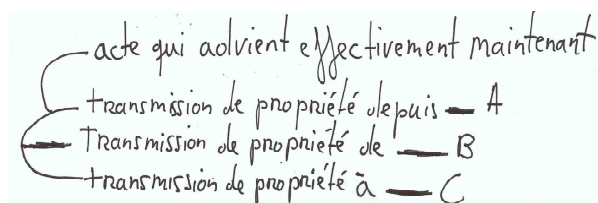 acte qui advient effectivement maintenant
transmission de propriété depuis — A
Transmission de propriété de — B
transmission de propriété à — C